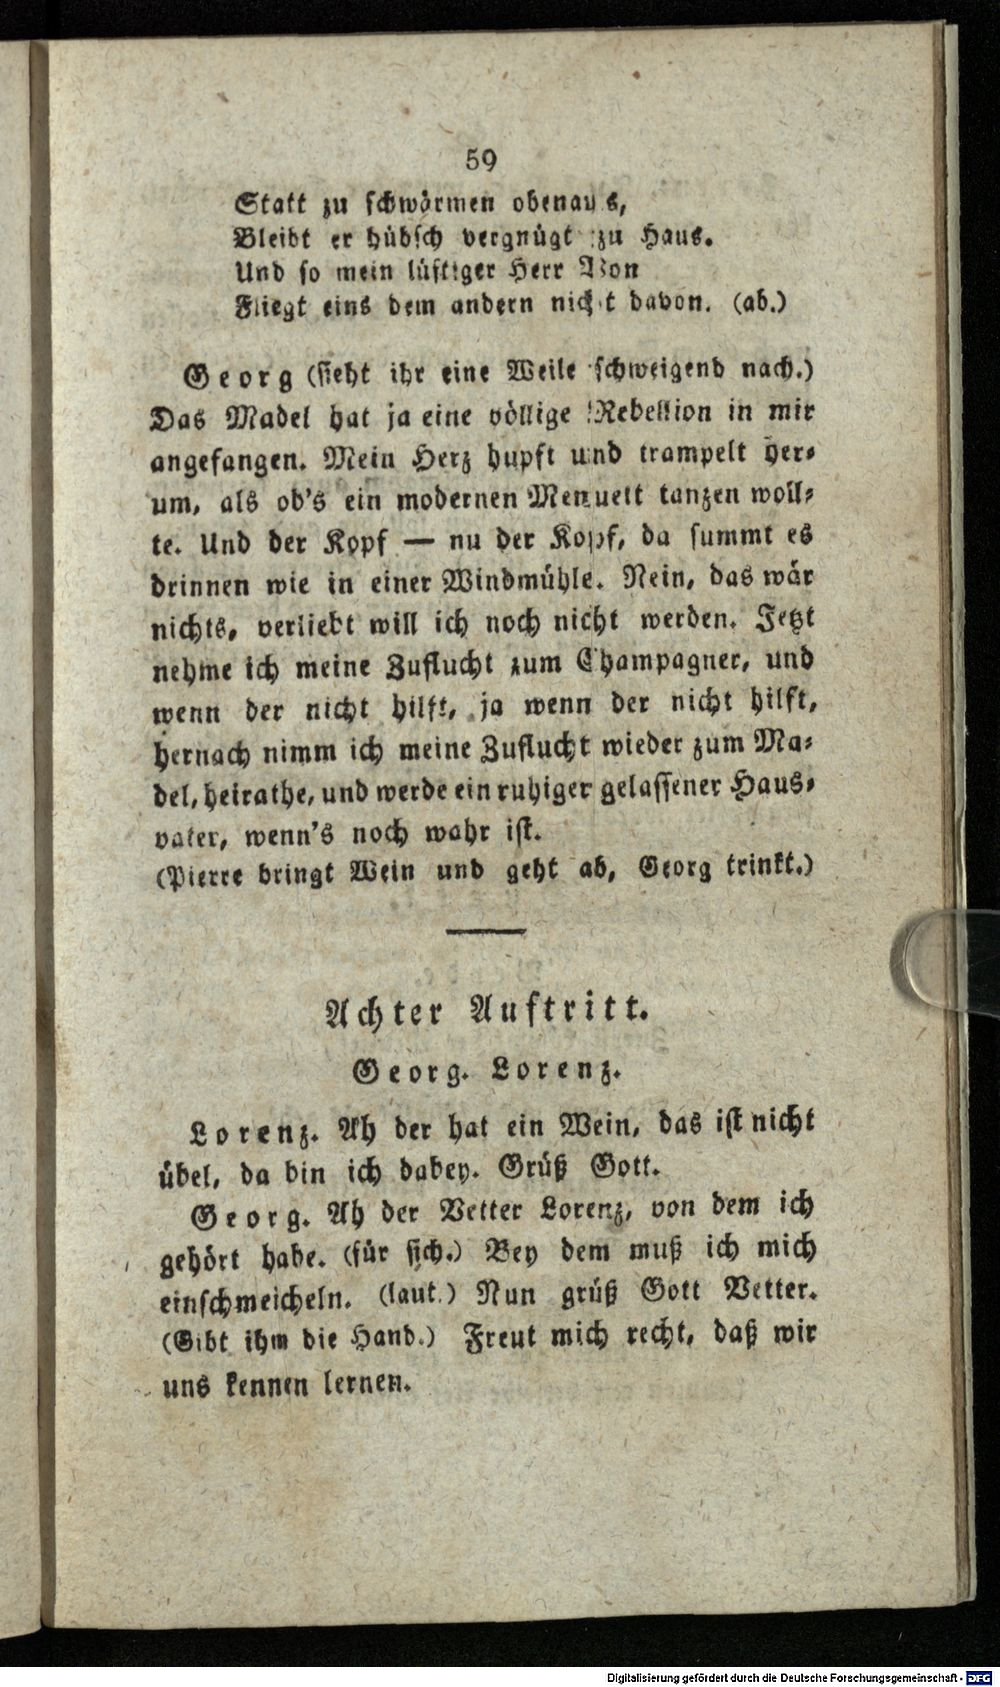 59
Statt zu schwärmen obenaus,
Bleibt er hübsch vergnügt zu Haus.
Und so mein lüftiger Herr Von
Fliegt eins dem andern nicht davon. (ab.)
Georg (sieht ihr eine Weile schweigend nach.)
Das Madel hat ja eine völlige Rebellion in mir
angefangen. Mein Herz hupft und trampelt her-
um, als ob's ein modernen Menuett tanzen woll-
te. Und der Kopf — nu der Kopf, da summt es
drinnen wie in einer Windmühle. Nein, das wär
nichts, verliebt will ich noch nicht werden. Jetzt
nehme ich meine Zuflucht zum Champagner, und
wenn der nicht hilft, ja wenn der nicht hilft,
hernach nimm ich meine Zuflucht wieder zum Ma-
del, heirathe, und werde ein ruhiger gelassener Haus-
vater, wenn's noch wahr ist.
(Pierre bringt Wein und geht ab, Georg trinkt.)
Achter Auftritt.
Georg. Lorenz.
Lorenz. Ah der hat ein Wein, das ist nicht
übel, da bin ich dabey. Grüß Gott.
Georg. Ah der Vetter Lorenz, von dem ich
gehört habe. (für sich.) Bey dem muß ich mich
einschmeicheln. (laut.) Nun grüß Gott Vetter.
(Gibt ihm die Hand.) Freut mich recht, daß wir
uns kennen lernen.
Digitalisierung gefördert durch die Deutsche Forschungsgemeinschaft - DFG